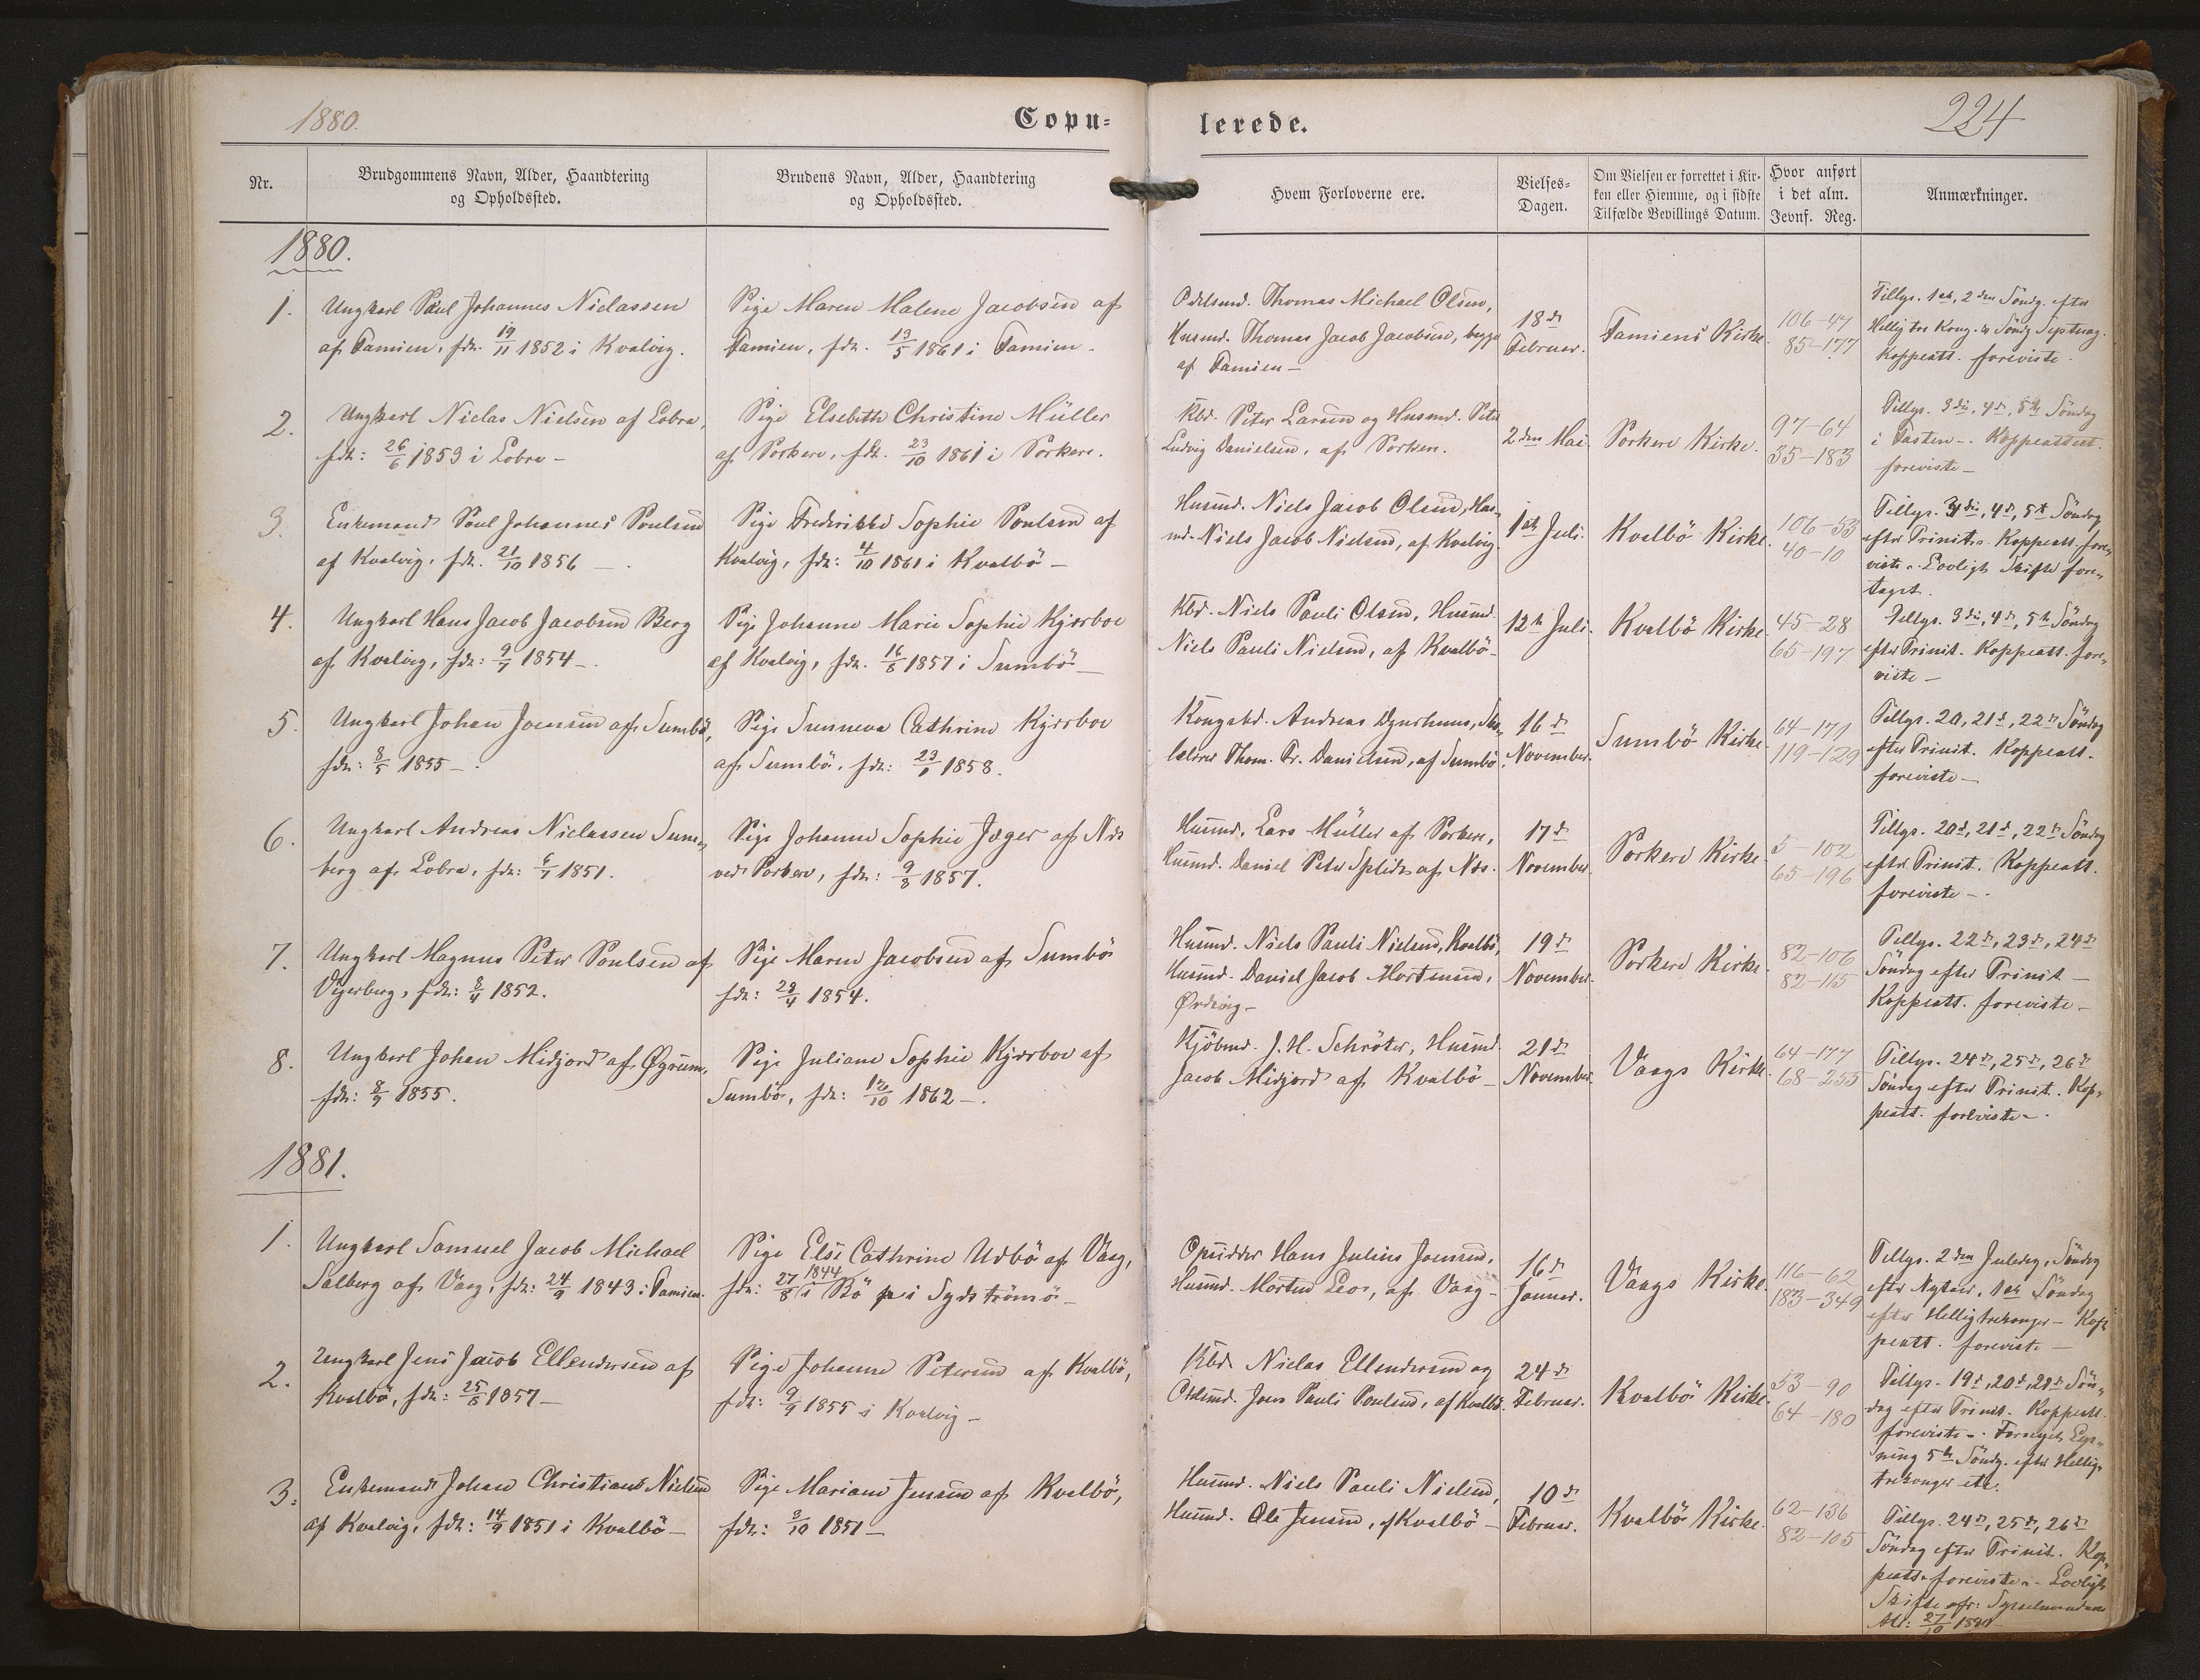 1880.
Copu-
lerede.
224
Nr.
Brudgommens Navn, Alder, Haandtering
og Opholdssted.
Brudens Navn, Alder, Haandtering
og Opholdssted.
Hvem Forloverne ere.
Vielses-
Dagen.
Om Vielsen er forrettet i Kir-
ken eller Hjemme, og i sidste
Tilfælde Bevillings Datum.
Hvor anført
i det alm.
Jevnf. Reg.
Anmærkninger.
1880.
1.
Ungkarl Poul Johannes Niclassen
af Famien, fdt. 19/11 1852 i Kvalvig.
Pige Maren Malene Jacobsen af
Famien, fdt. 13/5 1861 i Famien-
Odelsmd. Thomas Michael Olsen,
Husmd. Thomas Jacob Jacobsen, begge
af Famien-
18de
Februar.
Famiens Kirke.
106-47
85-177
Tillys. 1ste, 2den Søndg. efter
Hellig tre Kong. & Søndg Septuag.
Koppeatt. foreviste.
2.
Ungkarl Niclas Nielsen af Lobra,
fdt: 26/6 1853 i Lobra-
Pige Elsebeth Christine Müller
af Porkere, fdt. 23/10 1861 i Porkere.
Kbd. Peter Larsen og Husmd. Peter
Ludvig Danielsen, af Porkere.
2den Mai.
Porkere Kirke.
97-64
35-183
Tillys. 3die, 4de, 5te Søndag
i Fasten-. Koppeattest.
foreviste-
3.
Enkemand Poul Johannes Poulsen
af Kvalvig, fdt. 21/10 1856-.
Pige Frederikke Sophie Poulsen af
Kvalvig, fdt: 4/10 1861 i Kvalbö-
Husmd. Niels Jacob Olsen, Hus-
md. Niels Jacob Nielsen, af Kvalvig.
1ste Juli.
Kvalbö Kirke.
106-53
40-10
Tillys. 3die, 4de, 5te Søndag
efter Trinit. Koppeatt. fore-
viste. Lovligt Skifte fore-
taget.
4.
Ungkarl Hans Jacob Jacobsen Berg
af Kvalvig, fdt: 9/7 1854-.
Pige Johanne Marie Sophie Kjærboe
af Kvalvig, fdt. 16/8 1857 i Sumbö-
Kbd. Niels Pauli Olsen, Husmd.
Niels Pauli Nielsen, af Kvalbö-
12te Juli.
Kvalbö Kirke
45-28
65-197
Tillys. 3die, 4de, 5te Søndag
efter Trinit. Koppeatt. fore-
viste-
5.
Ungkarl Johan Joensen af Sumbö,
fdt: 8/5 1855-.
Pige Sunneva Cathrine Kjærboe
af Sumbö, fdt: 23/1 1858.
Kongsbd. Andreas Djurhuus, Sko-
lelærer Thom. Fr. Danielsen, af Sumbö.
16de
November.
Sumbö Kirke.
64-171
119-129
Tillys. 20, 21de, 22de Søndag
efter Trinit. Koppeatt.
foreviste-
6.
Ungkarl Andreas Niclassen Sum-
berg af Lobra, fdt: 6/1 1851.
Pige Johanne Sophie Jæger af Næs
ved Porkere, fdt: 9/8 1857.
Husmd. Lars Müller af Porkere,
Husmd. Daniel Peter Splidt af Næs.
17de
November.
Porkere Kirke.
5-102
65-196
Tillys. 20de, 21de, 22de Søndag
efter Trinit. Koppeatt.
foreviste-.
7.
Ungkarl Magnus Peter Poulsen af
Vejerberg, fdt: 8/4 1852.
Pige Maren Jacobsen af Sumbö
fdt: 28/4 1854.
Husmd. Niels Pauli Nielsen, Kvalbö,
Husmd. Daniel Jacob Mortensen,
Ørdevig-
19de
November.
Porkere Kirke.
82-106
82-115
Tillys. 22de, 23de, 24de
Søndag efter Trinit-
Koppeatt. foreviste-
8.
Ungkarl Johan Midjord af Øgrum,
fdt: 8/9 1855.
Pige Juliane Sophie Kjærboe af
Sumbö, fdt: 12/10 1862-.
Kjöbmd. J. H. Schröter, Husmd.
Jacob Midjord af Kvalbö-
21de
November.
Vaags Kirke.
64-177
68-255
Tillys. 24de, 25de, 26de
Søndag efter Trinit. Kop-
peatt. foreviste-.
1881.
1.
Ungkarl Samuel Jacob Michael
Salberg af Vaag, fdt: 24/9 1843 i Famien.
Pige Else Cathrine Udbö af Vaag,
fdt: 27/8 1844 i Bö i Syd Strömö-
Opsidder Hans Julius Joensen,
Husmd. Morten Leo, af Vaag-
16de
Januar.
Vaags Kirke.
116-62
183-349
Tillys. 2den Juledag, Søndag
efter Nytaar, 1ste Søndag
efter Helligtrekonger- Kop-
peatt. foreviste-
2.
Ungkarl Jens Jacob Ellendersen af
Kvalbö, fdt: 25/8 1857-
Pige Johanne Petersen af Kvalbö,
fdt: 9/9 1855 i Kvalvig-
Kbd. Niclas Ellendersen og
Odelsmd. Joen Pauli Poulsen, af Kvalbö.
24de
Februar.
Kvalbö Kirke.
53-90
64-180
Tillys. 19de, 20de, 21de Søn-
dag efter Trinit. Koppeatt.
foreviste-. Fornyet Lys-
ning 5te Søndg. efter Hellig-
trekonger etc.
3.
Enkemand Johan Christian Nielsen
af Kvalvig, fdt: 14/9 1851 i Kvalbö-
Pige Mariane Jensen af Kvalbö,
fdt: 3/10 1851-
Husmd. Niels Pauli Nielsen,
Husmd. Ole Jensen, af Kvalbö-
10de
Februar.
Kvalbö Kirke.
62-136
82-105
Tillys. 24de, 25de, 26de
Søndag efter Trinit. Kop-
peatt. foreviste- Lovligt
Skifte efr: Sysselmandens
Att: 27/10 1880